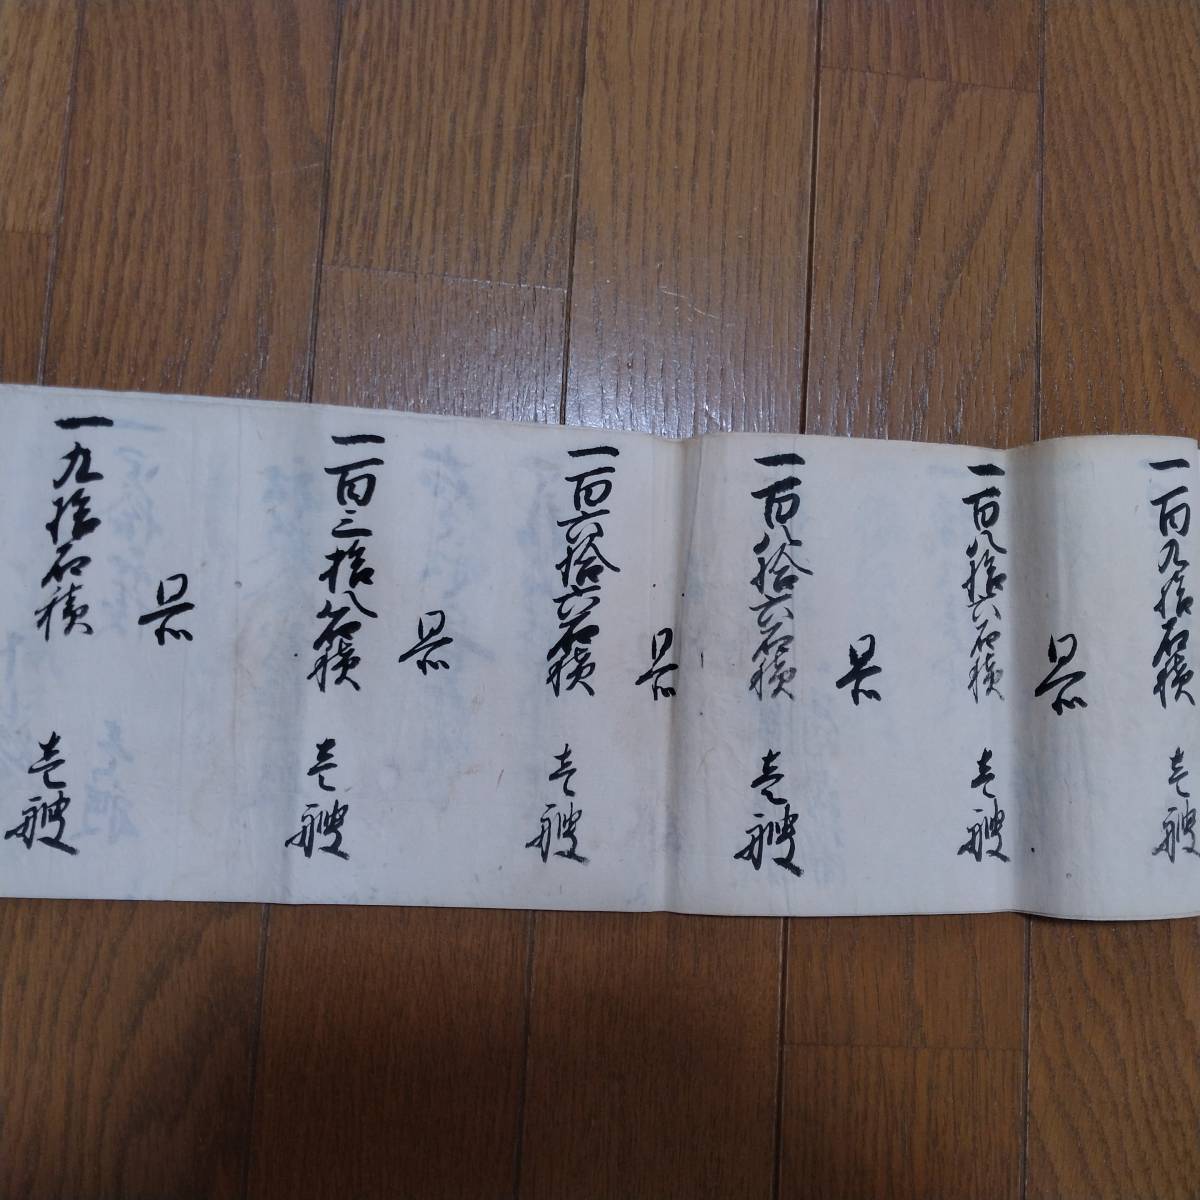 一百九拾石積 壱艘
一百八拾六石積 壱艘
一百八拾六石積 壱艘
一百六拾六石積 壱艘
一百三拾八石積 壱艘
一九拾石積 壱艘